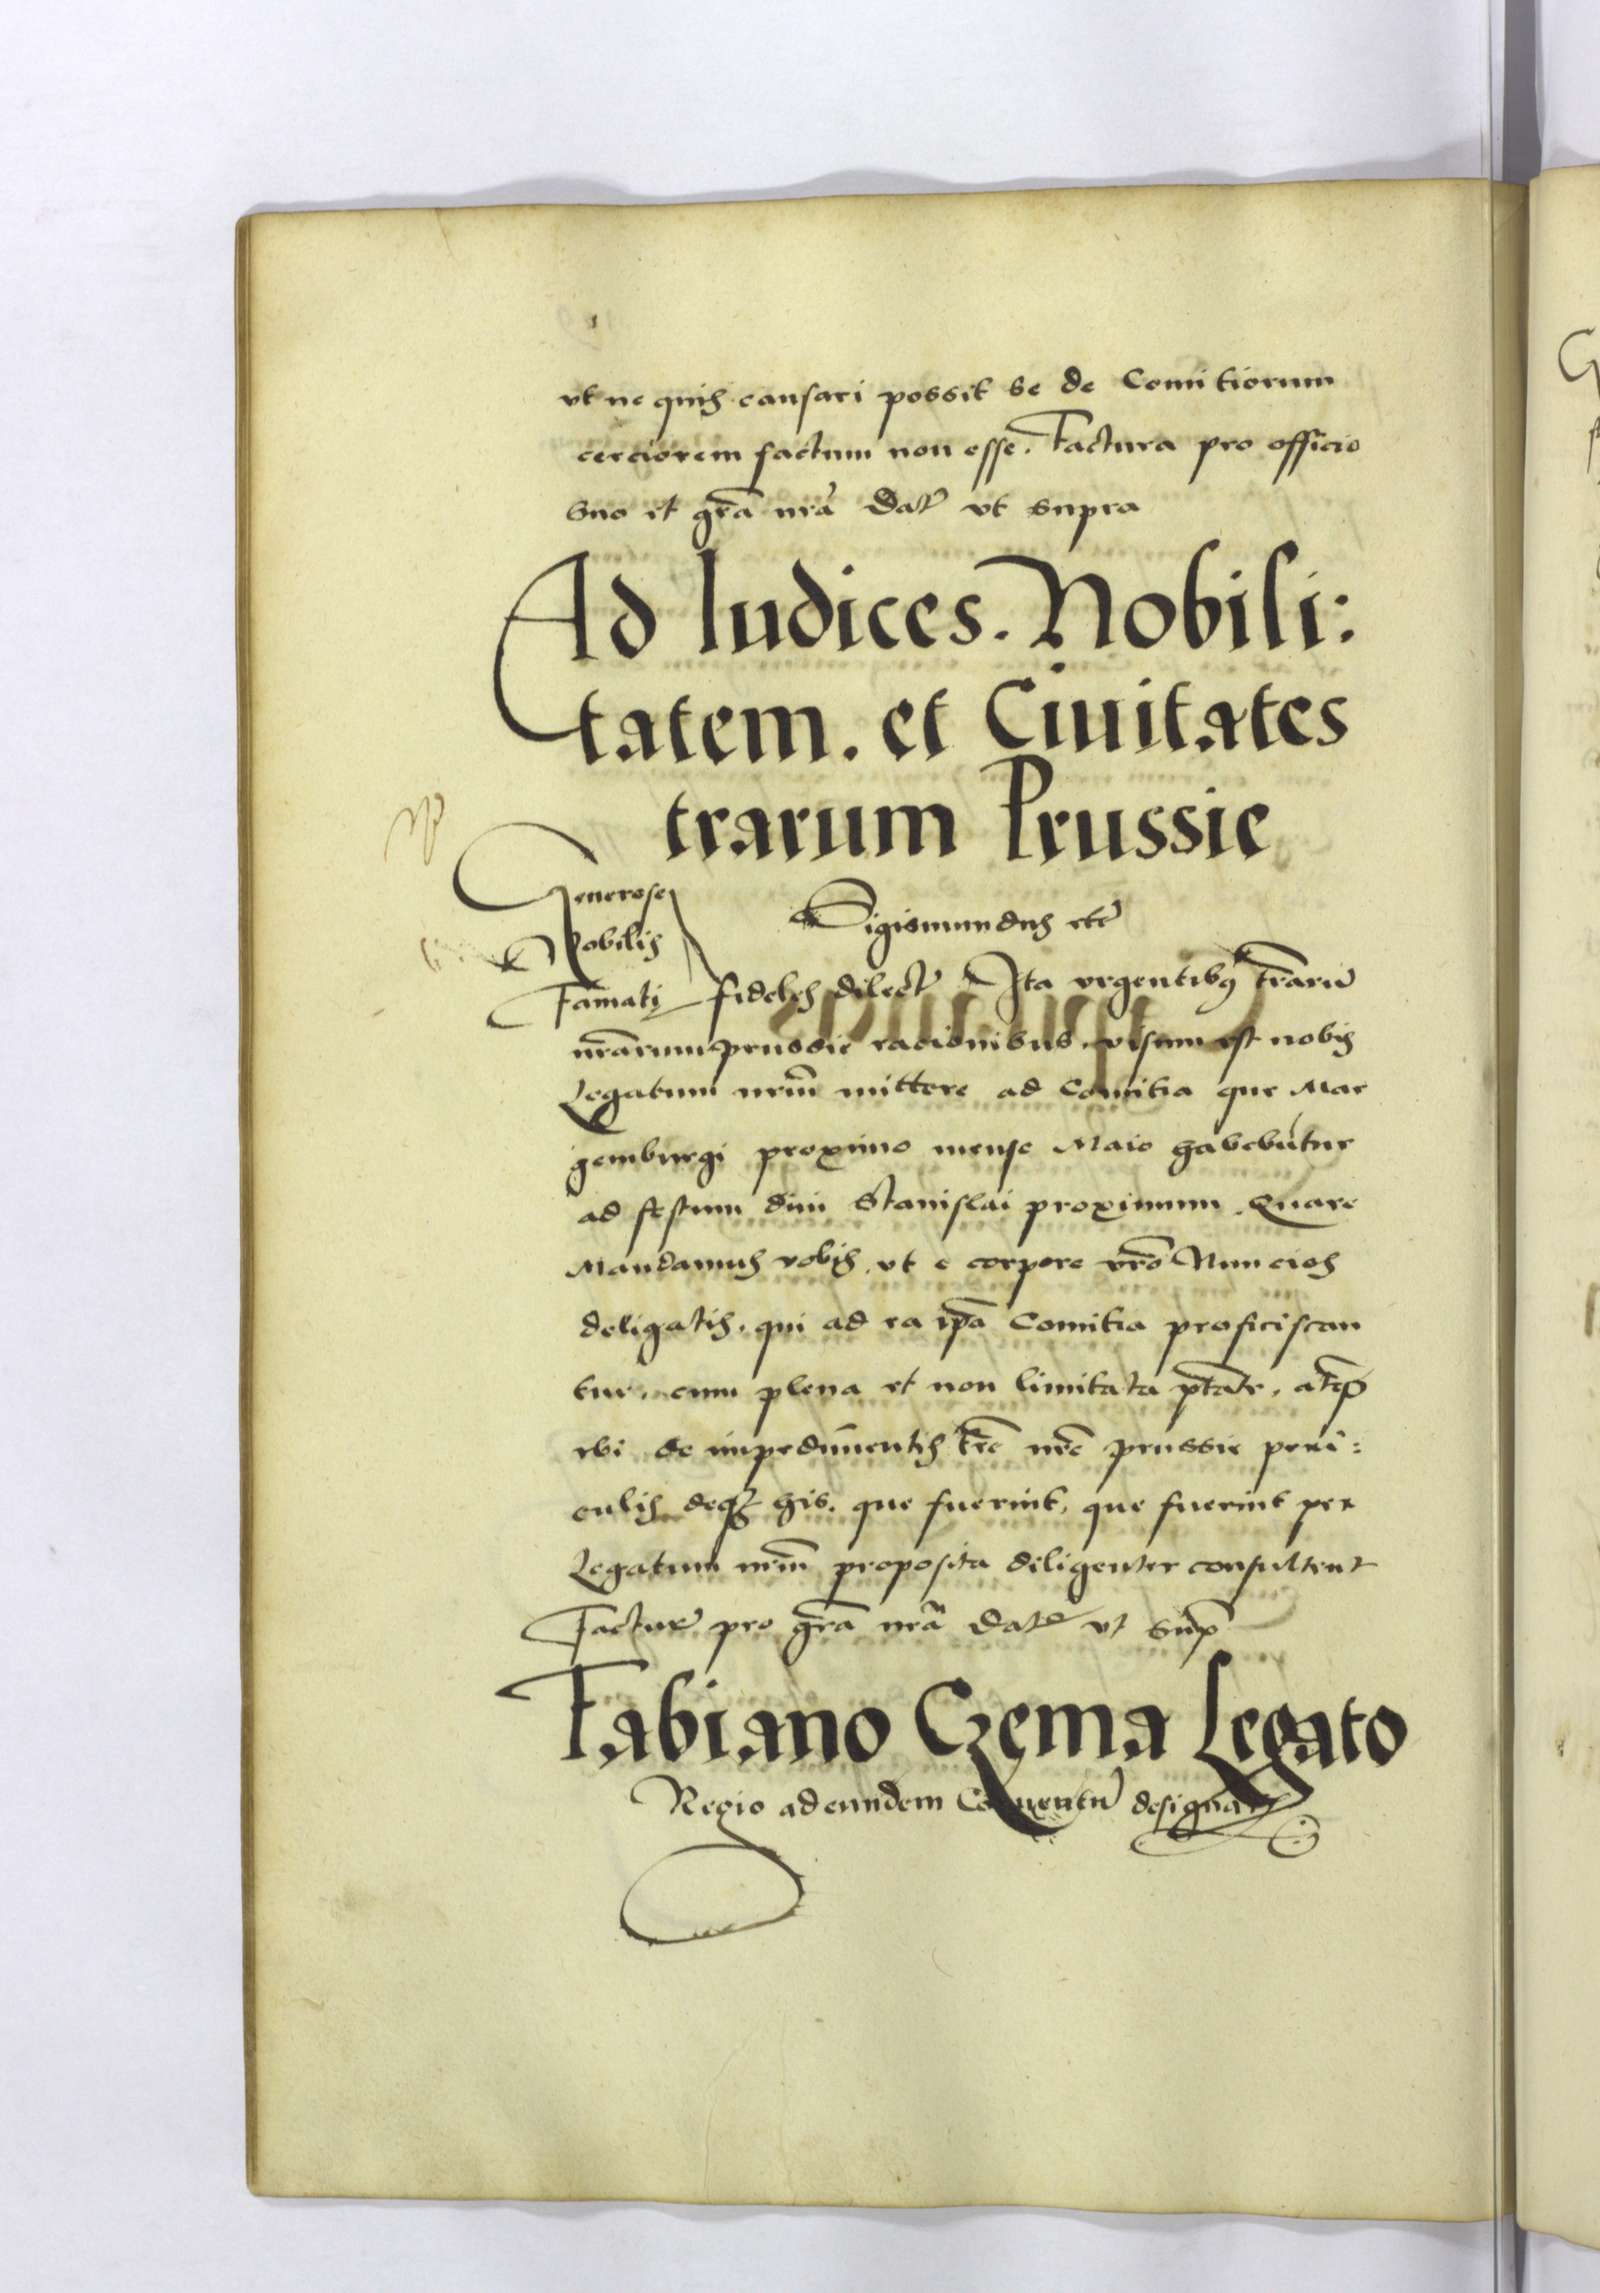 vt ne quis causari possit se de Comitiorum
cerciorem factum non esse. Factura pro officio
suo et gr̄a nr̄a Dat̄ vt supra
Ad Iudices. Nobili:
tatem. et Ciuitates
trarum Prussie
Sigismundus etc̄
Generose
Nobilis
Famati fideles dilect̄ Ita vrgentibꝰ tr̄arū
nr̄arum prussie racionibus visum est nobis
Legatum nrm̄ mittere ad Comitia que Mar
gemburgi proximo mense Maio habebūtur
ad festum diui Stanislai proximum. Quare
Mandamus vobis, vt e corpore vr̄o Nuncios
deligatis, qui ad ea ip̄a Comitia proficiscan
tur, cum plena et non limitata ptāte, atqꝫ
ibi de impedimentis tr̄e nr̄e prussie peri:
culis deqꝫ his, que fuerint, que fuerint per
Legatum nrm̄ proposita diligenter consultent
Factur̄ pro gr̄a nr̄a Dat̄ vt sup̄
Fabiano Czema Legato
Regio ad eundem Conuentū designat̄